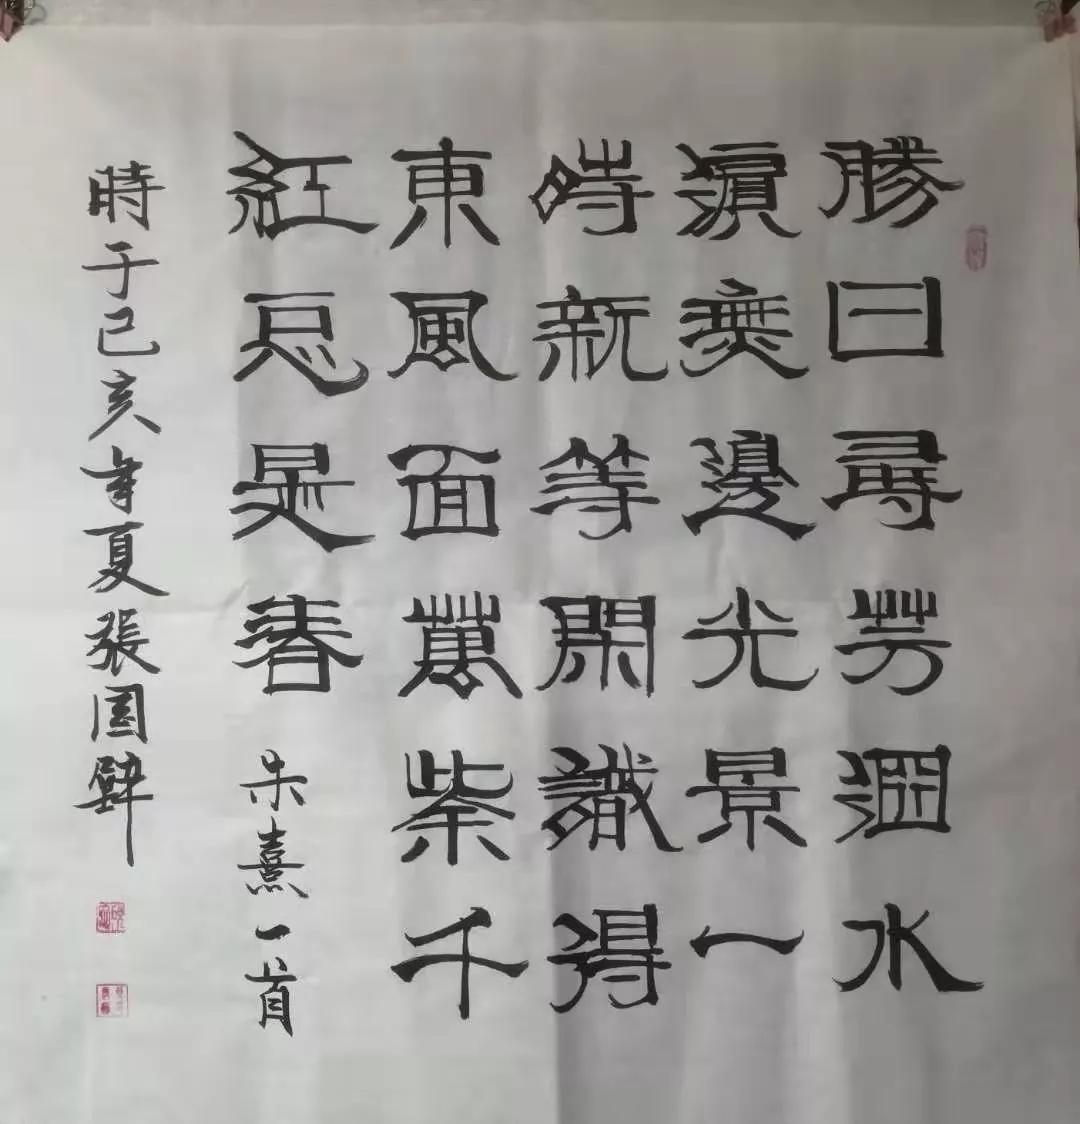 勝日尋芳泗水
濱無邊光景一
時新等閑識得
東風面萬紫千
紅總是春 朱熹一首
時于己亥年夏張國